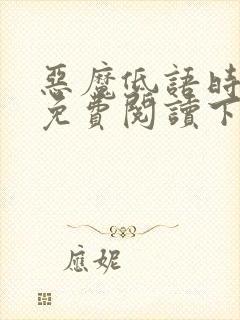 惡魔低語時
免費閱讀下
應妮